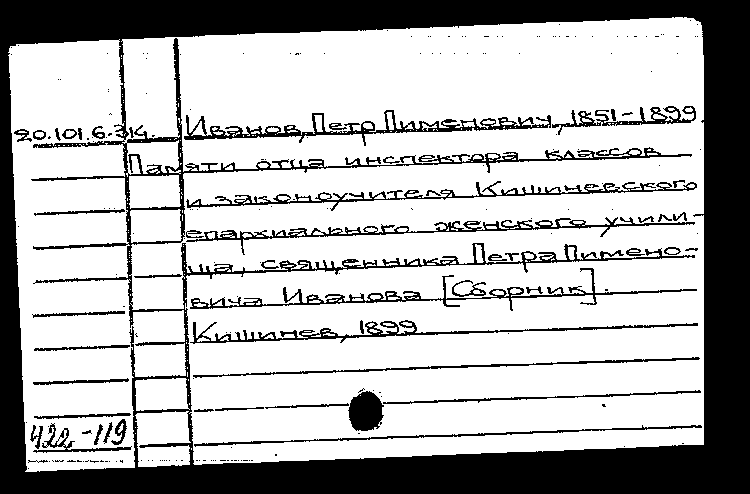 20.101.6.314. Иванов, Петр Пименович, 1851-1899.
Памяти отца инспектора классов
и законоучителя Кишиневского
епархиального женского учили-
ща, священника Петра Пимено-
вича Иванова [Сборник].
Кишинев, 1899
422-119